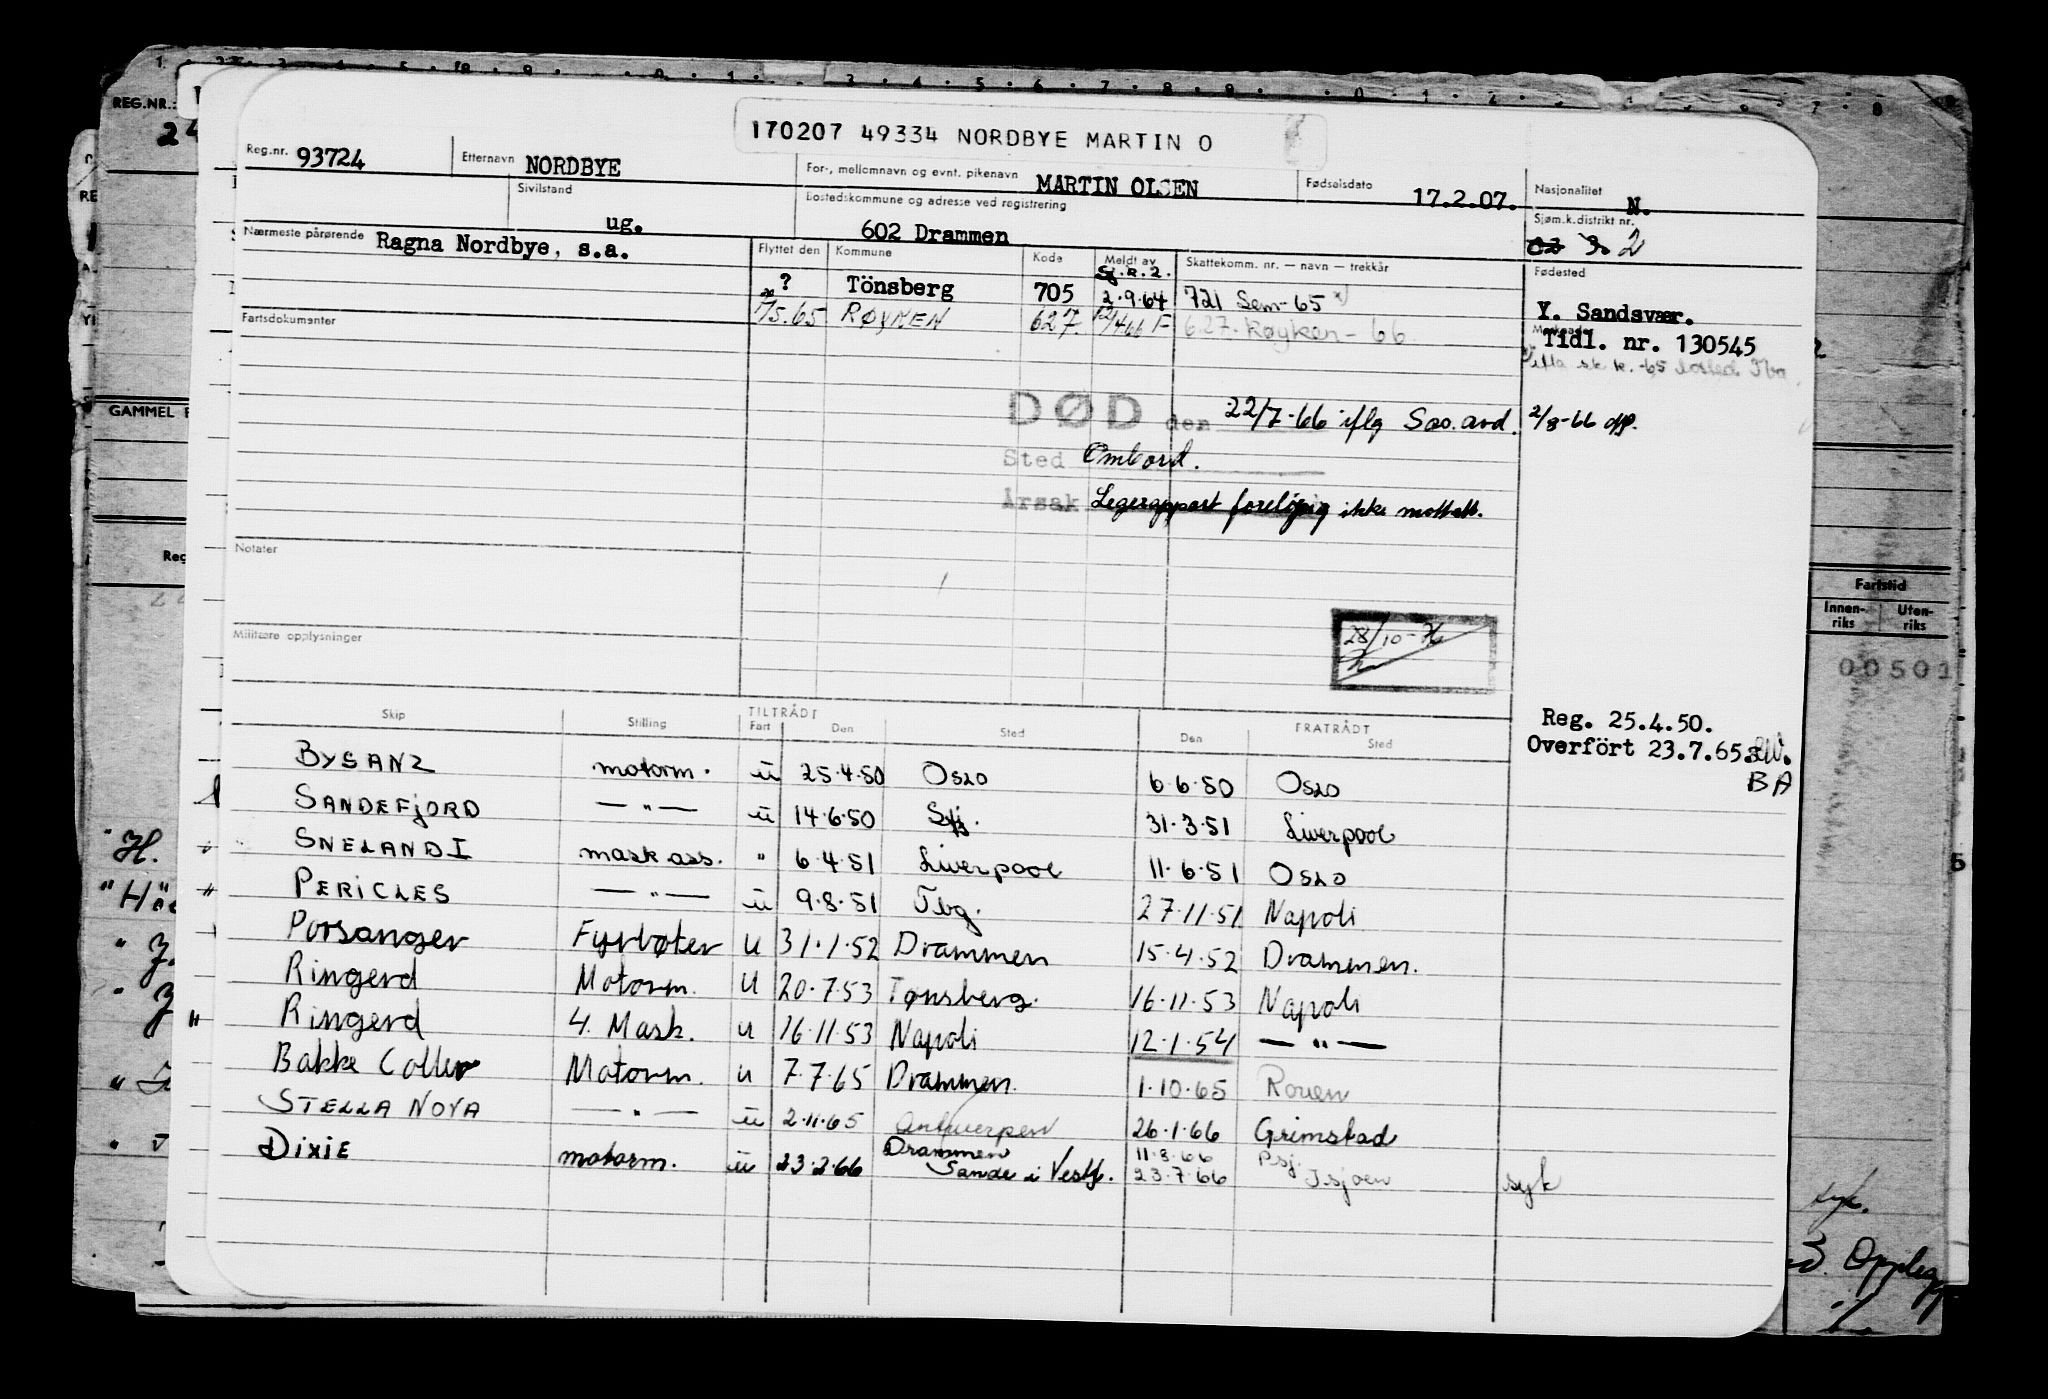 170207 49334 NORDBYE MARTIN O
Reg.nr. 93724 Etternavn NORDBYE For-, mellomnavn og evnt. pikenavn MARTIN OLSEN Fødselsdato 17.2.07. Nasjonalitet N.
Sivilstand ug. Bostedskommune og adresse ved registrering 602 Drammen Sjøm.k.distrikt nr. 2
Nærmeste pårørende Ragna Nordbye, s.a. Flyttet den Kommune Kode Meldt av Skattekomm. nr. — navn — trekkår Fødested
Sj.k.2.
? Tönsberg 705 2.9.64 721 Sem-65 Y. Sandsvær.
Fartsdokumenter 5.65 RØYKEN 627 627. Røyken - 66. Tidl. nr. 130545
DØD den 22/7-66 iflg Soo. avd. 2/8-66
Sted Ombord.
Årsak Legerapport foreløpig ikke mottatt.
Notater
Militære opplysninger
28/10-
Reg. 25.4.50.
Overfört 23.7.65.
BA
TILTRÅDT FRATRÅDT
Skip Stilling Fart Den Sted Den Sted
BYSANZ motorm. u 25.4.50 OSLO 6.6.50 OSLO
SANDEFJORD — " — u 14.6.50 Sfj. 31.3.51 Liverpool
SNELAND I mask ass. " 6.4.51 Liverpool 11.6.51 OSLO
PERICLES — " — u 9.8.51 Tbg. 27.11.51 Napoli
Porsanger Fyrbøter u 31.1.52 Drammen 15.4.52 Drammen.
Ringerd Motorm. u 20.7.53 Tønsberg. 16.11.53 Napoli
Ringerd 4. Mask. u 16.11.53 Napoli 12.1.54 — " —
Bakke Coller Motorm. u 7.7.65 Drammen. 1.10.65 Rouen
STELLA NOVA — " — u 2.11.65 Antwerpen 26.1.66 Grimstad
Drammen 11.3.66 Psj.
DIXIE motorm. u 23.2.66 Sande i Vestf. 23.7.66 syk
REG.NR.:
GAMMEL
Reg
Fartstid
Innen-riks Uten-riks
00501